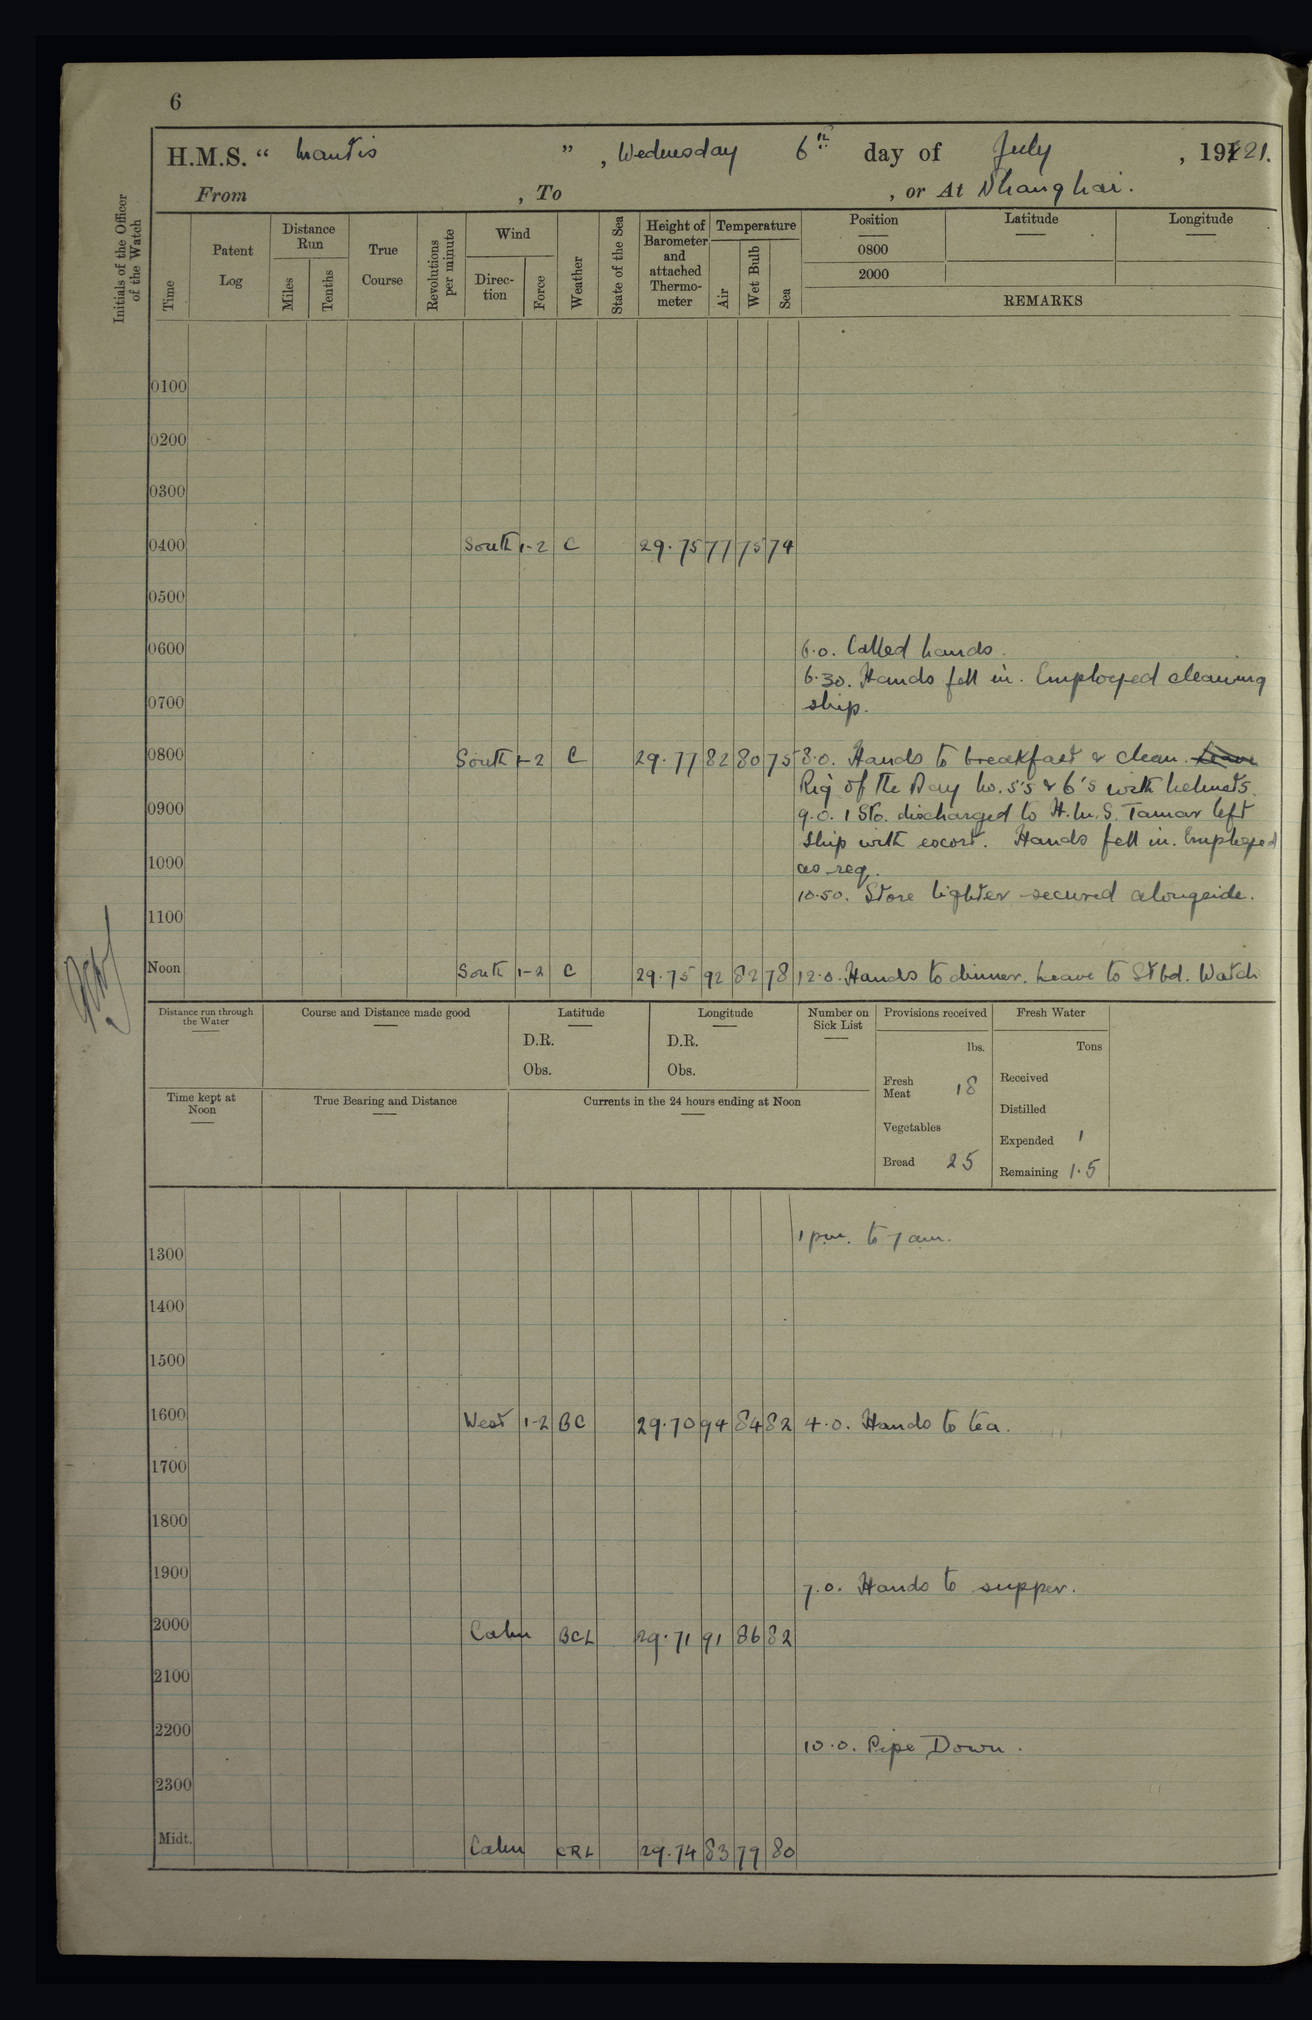 6
H.M.S. "Mantis", Wednesday 6th day of July, 1921.
From , To , or At Shanghai.
Initials of the Officer of the Watch
Time
Patent Log
Distance Run
Miles
Tenths
True Course
Revolutions per minute
Wind
Direction
Force
Weather
State of the Sea
Height of Barometer and attached Thermometer
Temperature
Air
Wet Bulb
Sea
Position Latitude Longitude
0800
2000
REMARKS
0100
0200
0300
0400 South 1-2 C 29.75 77 75 74
0500
0600 6.0. Called hands.
6.30. Hands fell in. Employed cleaning
0700 ship.
0800 South 1-2 C 29.77 82 80 75 8.0. Hands to breakfast & clean. Leave
Rig of the Day No. 5's & 6's with helmets.
0900 9.0. 1 Sto. discharged to H.M.S. Tamar left
ship with escort. Hands fell in. Employed
1000 as req.
10.50. Store lighter secured alongside.
1100
Noon South 1-2 C 29.75 92 82 78 12.0. Hands to dinner. Leave to Stbd. Watch
Distance run through the Water
Course and Distance made good
Latitude
D.R.
Obs.
Longitude
D.R.
Obs.
Number on Sick List
Provisions received
lbs.
Fresh Meat 18
Vegetables
Bread 25
Fresh Water
Tons
Received
Distilled
Expended 1
Remaining 1.5
Time kept at Noon
True Bearing and Distance
Currents in the 24 hours ending at Noon
1 pm. to 7 am.
1300
1400
1500
1600 West 1-2 BC 29.70 94 84 82 4.0. Hands to tea.
1700
1800
1900 7.0. Hands to supper.
2000 Calm BCL 29.71 91 86 82
2100
2200 10.0. Pipe Down.
2300
Midt. Calm CRL 29.74 83 79 80